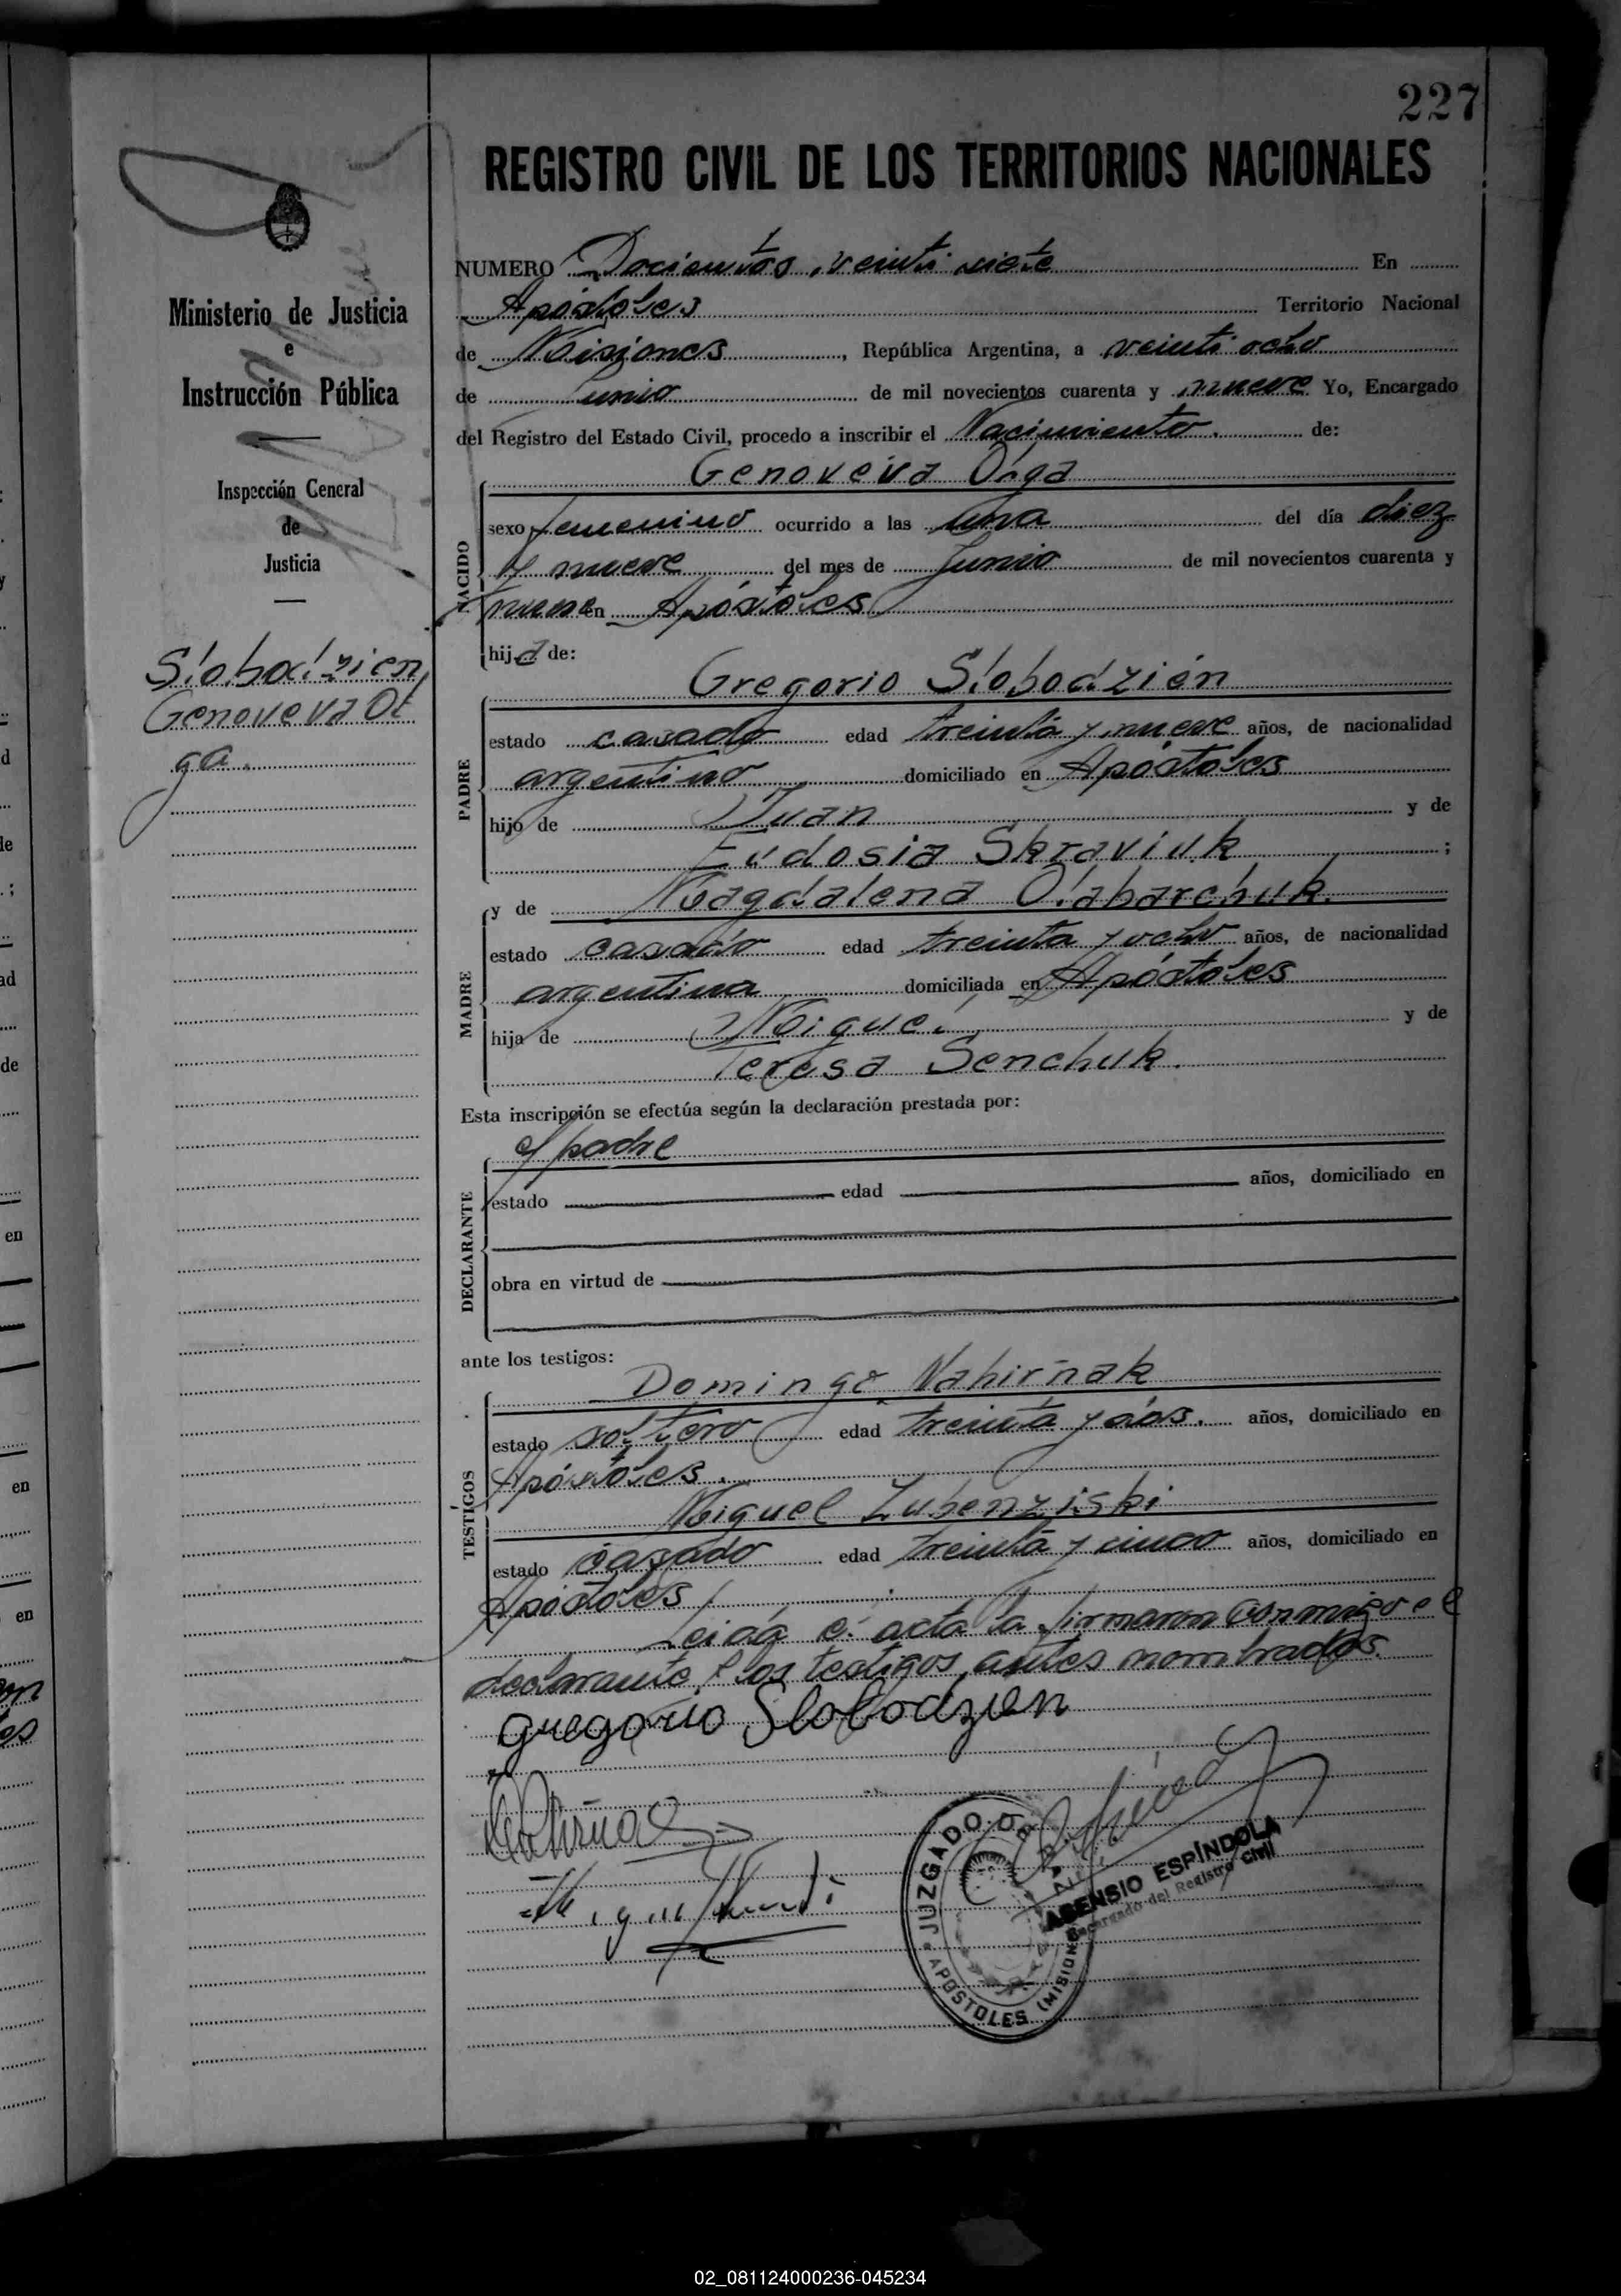 227
REGISTRO CIVIL DE LOS TERRITORIOS NACIONALES
Ministerio de Justicia
e
Instrucción Pública
Inspección General
de
Justicia
Slobodzien,
Genoveva Ol
ga.
NUMERO Docientos veinti siete En
Apóstoles Territorio Nacional
de Misiones, República Argentina, a veinti ocho
de Junio de mil novecientos cuarenta y nueve Yo, Encargado
del Registro del Estado Civil, procedo a inscribir el Nacimiento. de:
NACIDO
Genoveva Olga
sexo femenino ocurrido a las una del día diez
y nueve del mes de Junio de mil novecientos cuarenta y
nueve en Apóstoles
hija de:
PADRE
Gregorio Slobodzién
estado casado edad treinta y nueve años, de nacionalidad
argentino domiciliado en Apóstoles
hijo de Juan y de
Eudosia Skraviuk;
MADRE
y de Magdalena Olabarchuk.
estado casado edad treinta y ocho años, de nacionalidad
argentina domiciliada en Apóstoles
hija de Miguel y de
Teresa Senchuk.
Esta inscripción se efectúa según la declaración prestada por:
DECLARANTE
el padre
estado edad años, domiciliado en
obra en virtud de
ante los testigos:
TESTIGOS
Domingo Nahirñak
estado soltero edad treinta y dos. años, domiciliado en
Apóstoles.
Miguel Zubenziski
estado casado edad treinta y cinco años, domiciliado en
Apóstoles
Leida el acta la firmaron conmigo el
declarante y los testigos antes nombrados.
Gregorio Slobodzien
JUZGADO DE PAZ
APOSTOLES (MISIONES)
ASENSIO ESPÍNDOLA
Encargado del Registro Civil
02_081124000236-045234